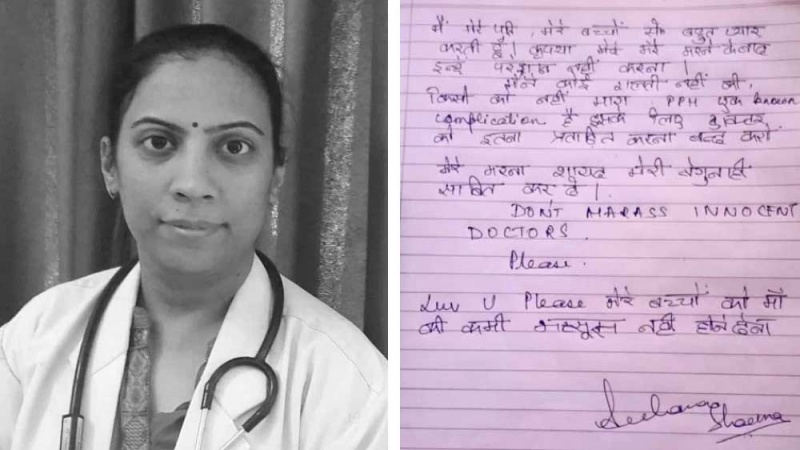 मैं मेरे पति, मेरे बच्चों से बहुत प्यार
करती हूँ। कृपया मेरे मरने के बाद
इन्हें परेशान नहीं करना।
मैंने कोई गलती नहीं की,
किसी को नहीं मारा PPH एक known
complication है, इसके लिए डॉक्टर
को इतना प्रताड़ित करना बन्द करो
मेरा मरना शायद मेरी बेगुनाही
साबित कर दे।
DON'T HARASS INNOCENT
DOCTORS.
Please.
Luv U Please मेरे बच्चों को माँ
की कमी महसूस नहीं होने देना
Sharma